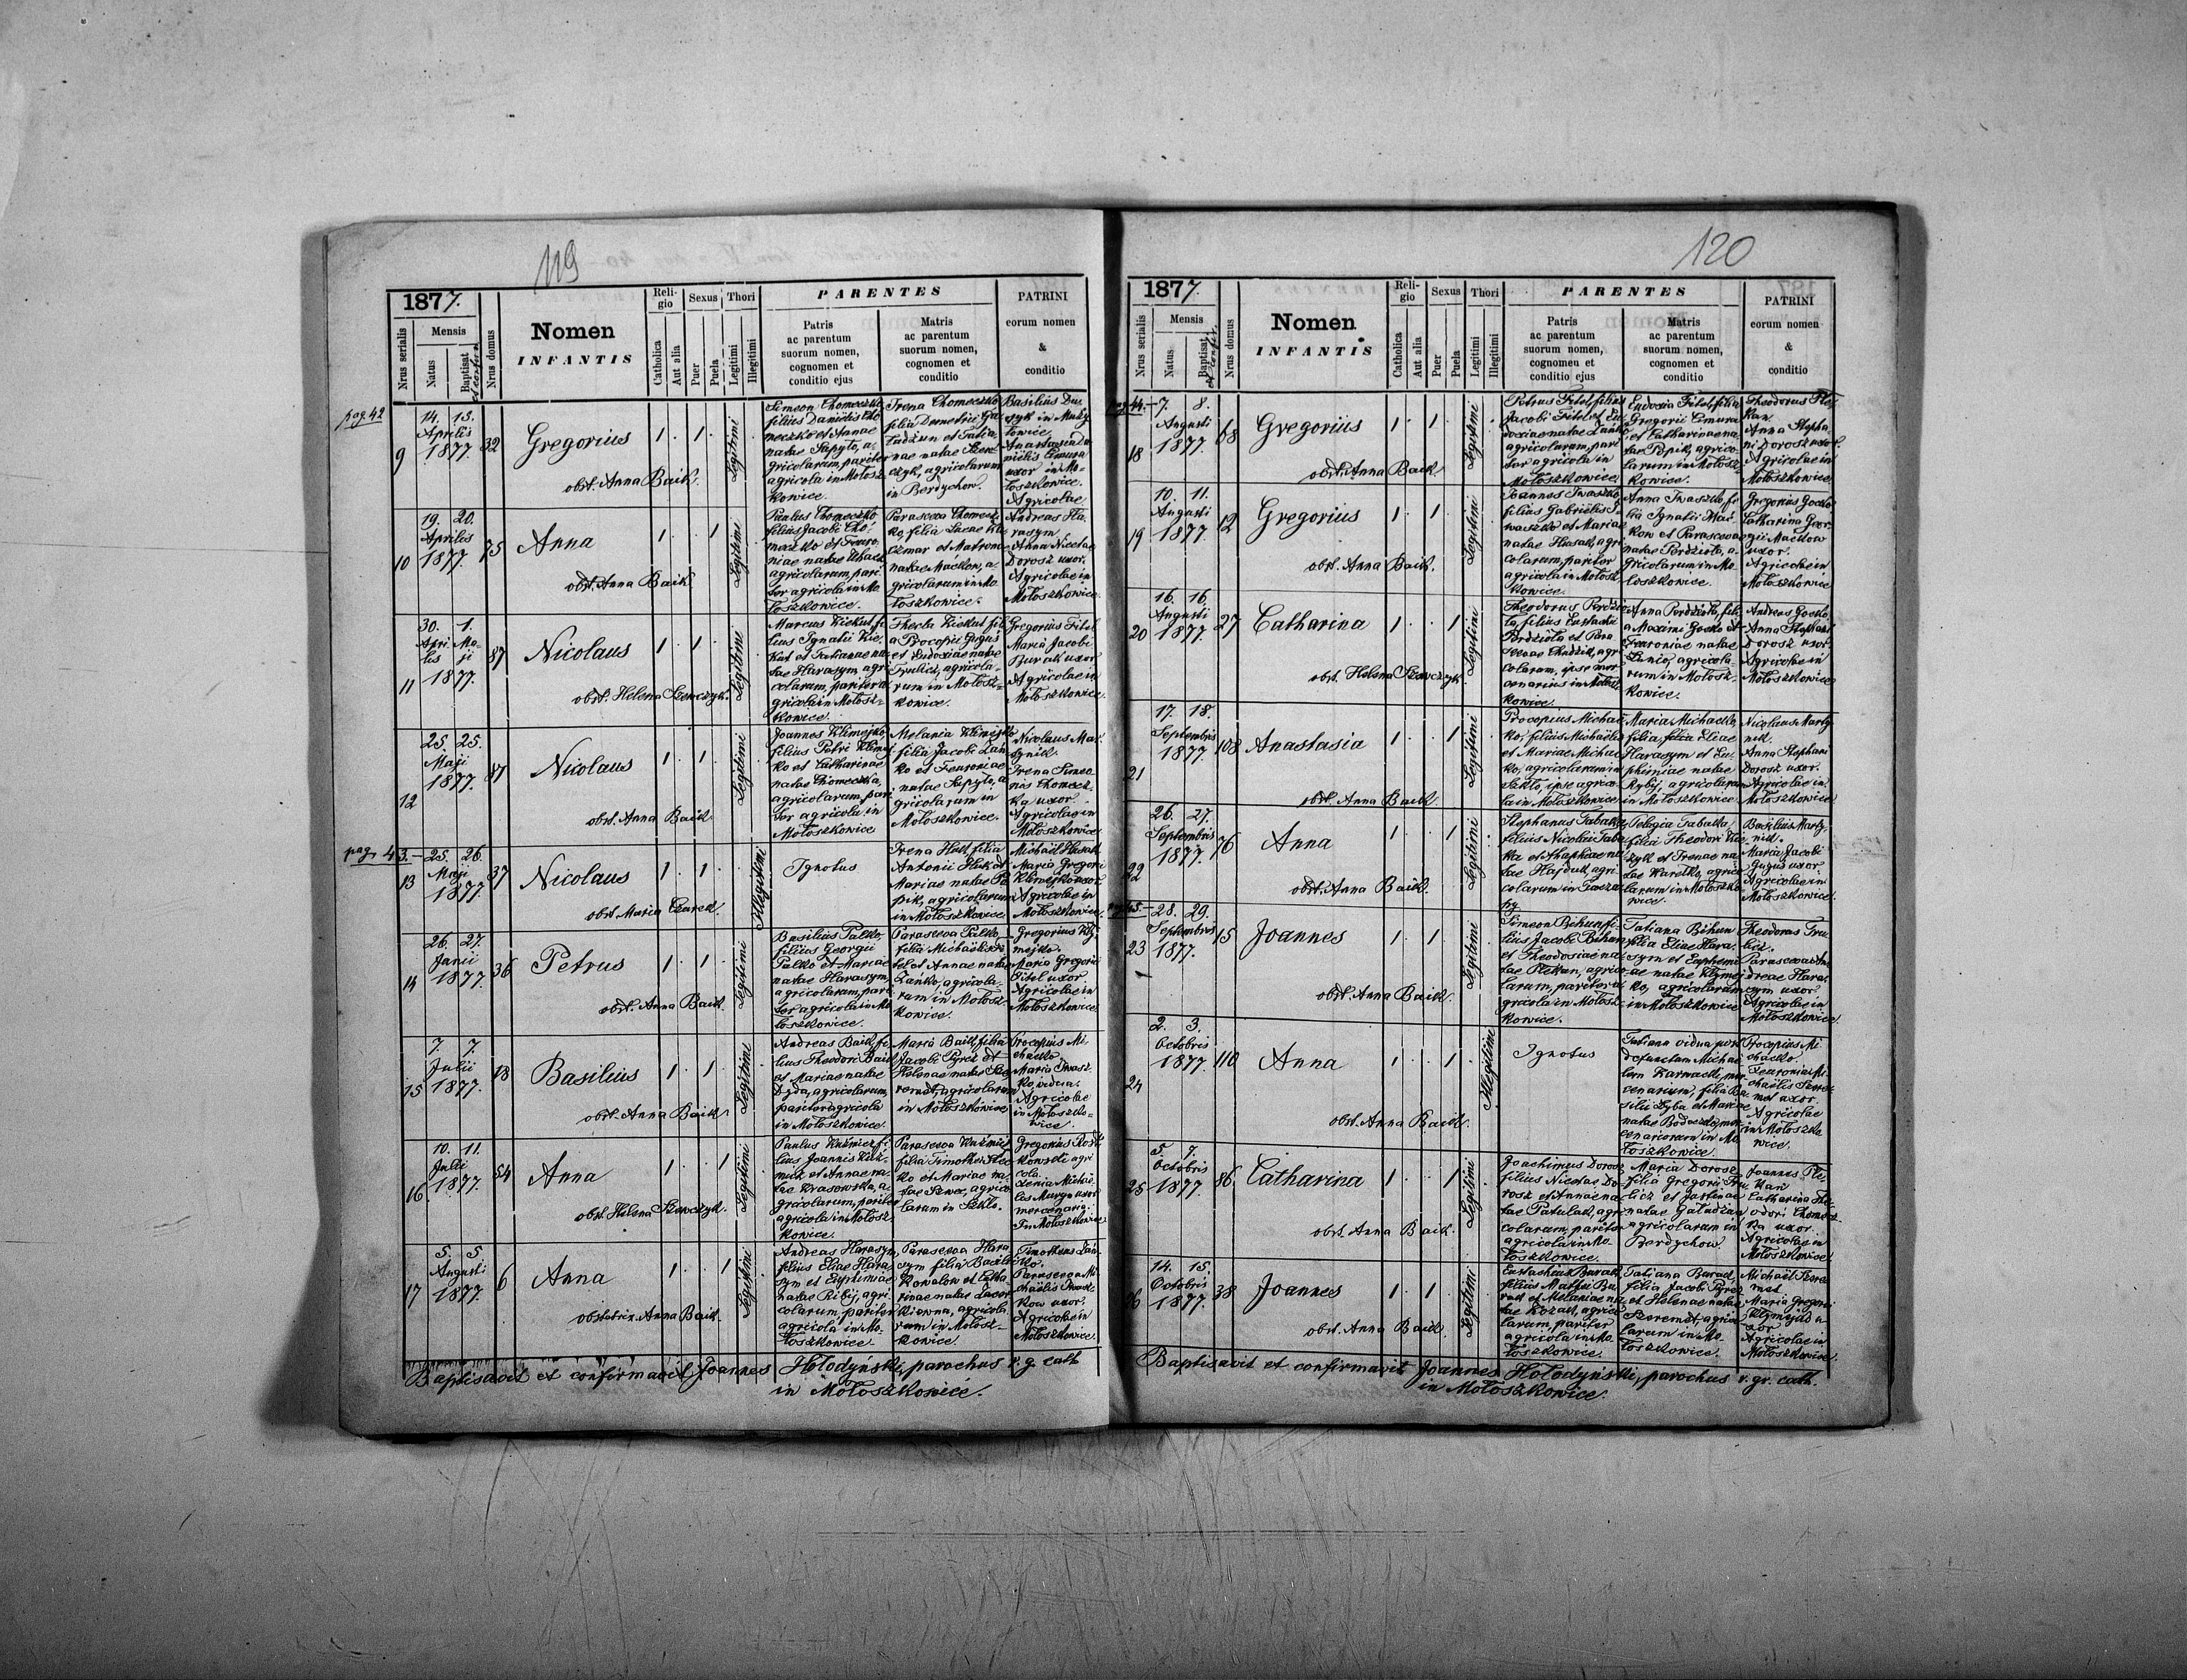 119
1877.
Nrus serialis
Mensis
Natus
Baptisat
Nrus domus
Nomen
INFANTIS
Religio
Catholica
Aut alia
Sexus
Puer
Puela
Thori
Legitimi
Illegitimi
PARENTES
Patris
ac parentum
suorum nomen,
cognomen et
conditio ejus
Matris
ac parentum
suorum nomen,
cognomen et
conditio
PATRINI
eorum nomen
&
conditio
pag 42
9
14. 15.
Aprilis
1877
32
Gregorius
obst. Anna Baik.
1 . 1 .
Legitimi
Simeon Chomeczko
filius Danielis Cho
meczko et Annae
natae Sapyto, a-
gricolarum, pariter
agricola in Mołosz
kowice.
Irena Chomeczko
filia Demetrii Ga
ładżun et Tatia
nae natae Szew
czyk, agricolarum
in Berdychow.
Basilius Du
in Muży
łowice
Anastasia Da
nielis Cmura
uxor in Mo-
łoszkowice.
Agricolae
10
19. 20.
Aprilis
1877.
75
Anna
obst. Anna Baik
1 . . 1
Legitimi
Paulus Chomeczko
filius Jacobi Cho-
meczko et Feuro
niae natae
agricolarum, pari
ter agricola in Mo
łoszkowice.
Parasceva Chomecz
ko, filia Lucae
et Matronae
natae Maćkow, a-
gricolarum in Mo
łoszkowice.
Andreas Ha-
rasym
Anna Nicolai
Dorosz uxor.
Agricolae in
Mołoszkowice.
11
30. 1.
Apri Ma-
lis ji
1877.
87
Nicolaus
obst. Helena Szewczyk.
1 . 1 .
Legitimi
Marcus Kiekut, fi
lius Ignatii Kie-
kut et Tatianae na
tae Harasym agri
colarum, pariter a
gricola in Mołosz-
kowice.
Thecla Kiekut fili
a Procopii Guguś
et Eudoxiae natae
Trulicz, agricola-
rum in Mołosz-
kowice.
Gregorius Fitel
Maria Jacobi
Burak uxor
Agricolae in
Mołoszkowice.
12
25. 25.
Maji
1877.
87
Nicolaus
obst. Anna Baik
1 . 1 .
Legitimi
Joannes Klimejko,
filius Petri Klimej
ko et Catharinae
natae Chomeczko,
agricolarum, pari
ter agricola in
Mołoszkowice
Melania Klimejko
filia Jacobi Łań
ko et Feuroniae
natae Sapyto, a
gricolarum in
Mołoszkowice.
Nicolaus Mar-
tynik.
Irena Simeo
nis Chomecz-
ko uxor.
Agricolae in
Mołoszkowice
pag. 43.
13
25. 26.
Maji
1877.
37
Nicolaus
obst. Maria Czarek.
1 . 1 .
Illegitimi
Ignotus
Irena Huk, filia
Antonii Huk et
Mariae natae Po
pik, agricolarum
in Mołoszkowice
Michaël Husak
Maria Gregorii
Klimejko uxor
Agricolae in
Mołoszkowice.
14
26. 27.
Junii
1877.
36
Petrus
obst. Anna Baik.
1 . 1 .
Legitimi
Basilius Palko,
filius Georgii
Palko et Mariae
natae Harasym,
agricolarum, pari
ter agricola in Mo
łoszkowice.
Parasceva Palko,
filia Michaëlis Fi
tel et Annae natae
Łańko, agricola-
rum in Mołosz-
kowice.
Gregorius Kly-
mejko.
Maria Gregorii
Fitel uxor
Agricolae in
Mołoszkowice
15
7. 7.
Julii
1877.
18
Basilius
obst. Anna Baik
1 . 1 .
Legitimi
Andreas Baik, fi-
lius Theodori Baik
et Mariae natae
Dyda, agricolarum,
pariter agricola
in Mołoszkowice.
Maria Baik, filia
Jacobi Pyrcz et
Helenae natae Sze
remet, agricolarum
in Mołoszkowice
Procopius Mi
chaćko
Maria Iwasz
ko, vidua.
Agricolae
in Mołoszko-
wice.
16
10. 11.
Julii
1877.
54
Anna
obst. Helena Szewczyk.
1 . . 1
Legitimi
Paulus Kuźmicz fi
lius Joannis Kuź-
micz et Annae na-
tae Krasowska, a-
gricolarum, pariter
agricola in Mołosz
kowice.
Parasceva Kuźmicz
filia Timothei
ko et Mariae na-
tae Szwec, agrico
larum in Szkło.
Gregorius Kos
kowski agri
cola.
Xenia Michaë
lis Muryn uxor
mercenarii.
In Mołoszkowice
17
5. 5.
Augusti
1877.
6
Anna
obstetrix Anna Baik.
1 . . 1
Legitimi
Andreas Harasym,
filius Eliae Hara
sym et Euphimiae
natae Ribij, agri
colarum, pariter
agricola in Mo-
łoszkowice.
Parasceva Hara
sym filia Basilii
Kowalow et Catha
rinae natae
agricola
rum in Mołosz-
kowice.
Timotheus Łań
ko.
Parasceva Mi
chaëlis Iwasz
kow uxor.
Agricolae in
Mołoszkowice.
Baptisavit et confirmavit Joannes Hołodyński, parochus r. g. cath
in Mołoszkowice.
120
1877.
Nrus serialis
Mensis
Natus
Baptisat
et confir.
Nrus domus
Nomen
INFANTIS
Religio
Catholica
Aut alia
Sexus
Puer
Puela
Thori
Legitimi
Illegitimi
PARENTES
Patris
ac parentum
suorum nomen,
cognomen et
conditio ejus
Matris
ac parentum
suorum nomen,
cognomen et
conditio
PATRINI
eorum nomen
&
conditio
pag 44.
18
7. 8.
Augusti
1877.
68
Gregorius
obst. Anna Baik
1 . 1 .
Legitimi
Petrus Fitel, filius
Jacobi Fitel et Eu
doxiae natae Łańko
agricolarum, pari
ter agricola in
Mołoszkowice
Eudoxia Fitel, filia
Gregorii Cmura
et Catharinae na
tae Popik, agrico-
larum in Mołosz-
kowice.
Theodorus Ple
kan
Anna Stepha
ni Dorosz uxor.
Agricolae in
Mołoszkowice
19
10. 11.
Augusti
1877.
12
Gregorius
obst. Anna Baik.
1 . 1 .
Legitimi
Joannes Iwaszko
filius Gabrielis I-
waszko et Mariae
natae Husak, agri
colarum, pariter
agricola in Mołosz
kowice.
Anna Iwaszko, fi
lia Ignatii Mać
kow et Parascevae
natae Perdzioło, a-
gricolarum in Mo-
łoszkowice.
Gregorius Gocko
Catharina Geor
gii Maćkow
uxor.
Agricolae in
Mołoszkowice
20
16. 16.
Augusti
1877.
27
Catharina
obst. Helena Szewczyk
1 . . 1
Legitimi
Theodorus Perdzio
ło, filius Eustachii
Perdzioło et Para
scevae Chudzik, agri
colarum, ipse mer
cenarius in Mołosz
kowice.
Anna Perdzioło, fili-
a Maximi Gocko et
Feuroniae natae
Lunio, agricola-
rum in Mołosz-
kowice.
Andreas Gocko.
Anna Stephani
Dorosz uxor.
Agricolae in
Mołoszkowice
21
17. 18.
Septembris
1877.
108
Anastasia
obst. Anna Baik
1 . . 1
Legitimi
Procopius Michać
ko, filius Michaëlis
et Mariae Michać
ko, agricolarum in
Szkło, ipse agrico
la in Mołoszkowice
Maria Michaćko,
filia, filia Eliae
Harasym et Eu-
phimiae natae
Rybij, agricolarum
in Mołoszkowice.
Nicolaus Marty
nik.
Anna Stephani
Dorosz uxor.
Agricolae in
Mołoszkowice
22
26. 27.
Septembris
1877.
76
Anna
obst. Anna Baik.
1 . . 1
Legitimi
Stephanus Tabaka,
filius Nicolai Taba
ka et Agaphiae na
tae Hajduk, agri-
colarum in
Pelagia Tabaka,
filia Theodori
et Irenae na
tae Karetko, agrico
larum in Mołoszko
wice.
Basilius Marty
nik.
Maria Jacobi
Guguś uxor
Agricolae in
Mołoszkowice.
pag 45.
23
28. 29.
Septembris
1877.
15
Joannes
obst. Anna Baik.
1 . 1 .
Legitimi
Simeon Bihun fi-
lius Jacobi Bihun
et Theodosiae na
tae Plekan, agrico
larum, pariter a-
gricola in Mołosz
kowice.
Tatiana Bihun
filia Eliae Hara-
sym et Euphemi
ae natae Klymej
ko, agricolarum
in Mołoszkowice
Theodorus Tru
licz.
Parasceva An
dreae Hara
sym uxor
Agricolae in
Mołoszkowice.
24
2. 3.
Octobris
1877.
110
Anna
obst. Anna Baik.
1 . . 1
Illegitimi
Ignotus
Tatiana vidua post
defunctum Michae
lem Karnacki, mer
cenarium, filia Ba
silii Zyba et Mariae
natae mer
cenariorum in Mo
łoszkowice.
Procopius Mi
chaćko.
Feuronia Mi
chaëlis Szere-
met uxor.
Agricolae
in Mołoszko
wice.
25
5. 7.
Octobris
1877.
86
Catharina
obst. Anna Baik.
1 . . 1
Legitimi
Joachimus Dorosz
filius Nicolai Do
rosz et Annae na
tae Patulak, agri
colarum, pariter
agricola in Mo-
łoszkowice.
Maria Dorosz,
filia Gregorii Tru
licz et Justinae
natae Gaładżun
agricolarum in
Berdychow
Joannes Ple
kan
Catharina The
odori Chomecz
ko uxor.
Agricolae in
Mołoszkowice
26
14. 15.
Octobris
1877.
38
Joannes
obst. Anna Baik.
1 . 1 .
Legitimi
Eustachius Burak
filius Mathei Bu
rak et Melaniae na
tae Kozak, agrico
larum, pariter
agricola in Mo-
łoszkowice.
Tatiana Burak,
filia Jacobi Pyrcz
et Helenae natae
Szeremet, agrico
larum in Mo-
łoszkowice.
Michaël Szere
met
Maria Gregorii
Klymejko u-
xor
Agricolae in
Mołoszkowice.
Baptisavit et confirmavit Joannes Hołodyński, parochus r. gr. cath.
in Mołoszkowice.